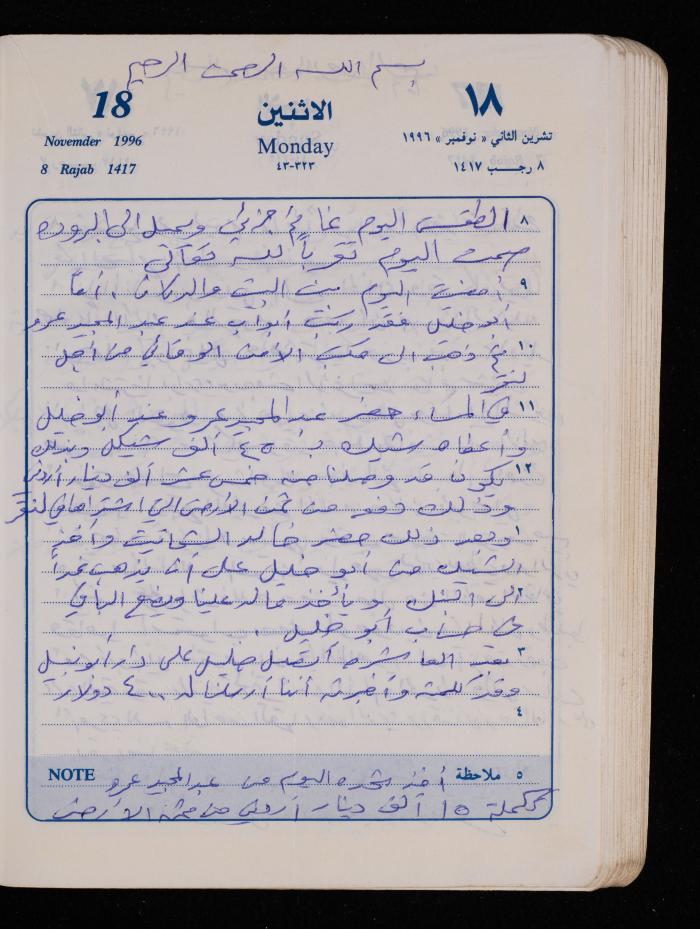 بسم الله الرحمن الرحيم
18 الاثنين ١٨
Novemder 1996 Monday تشرين الثاني « نوفمبر » ١٩٩٦
8 Rajab 1417 ٣٢٣-٤٣ ٨ رجب ١٤١٧
٨ الطقس اليوم غائم جزئي ويميل الى البرودة
صمت اليوم تقرباً لله تعالى
٩ أمضيت اليوم بين البيت والدكان . أما
أبو خليل فقد ركب أبواب عند عبد المجيد عمرو
١٠ ثم ذهب الى مكتب الأمن الوقائي من أجل
١١ في المساء حضر عبد المجيد عمرو عند أبو خليل
وأعطاه شيك ب ٤٥ ألف شيكل وبذلك
١٢ يكون قد وصلنا منه خمس عشر ألف دينار أردني
وذلك دفع من ثمن الأرض التي اشتراها
١ وبعد ذلك حضر خالد وأخذ
الشيك من أبو خليل على أن يذهب غداً
٢ الى البنك ويأخذ ماله علينا ويضع الباقي
في حساب أبو خليل .
٣ بعد العاشرة اتصل خليل على دار أبو نبيل
وقد كلمته وأخبرته أننا أرسلنا له ٤٠٠ دولار
٤
NOTE ملاحظة ٥ أخذ اليوم من عبد المجيد عمرو
تكملة ١٥ ألف دينار أردني من ثمن الأرض